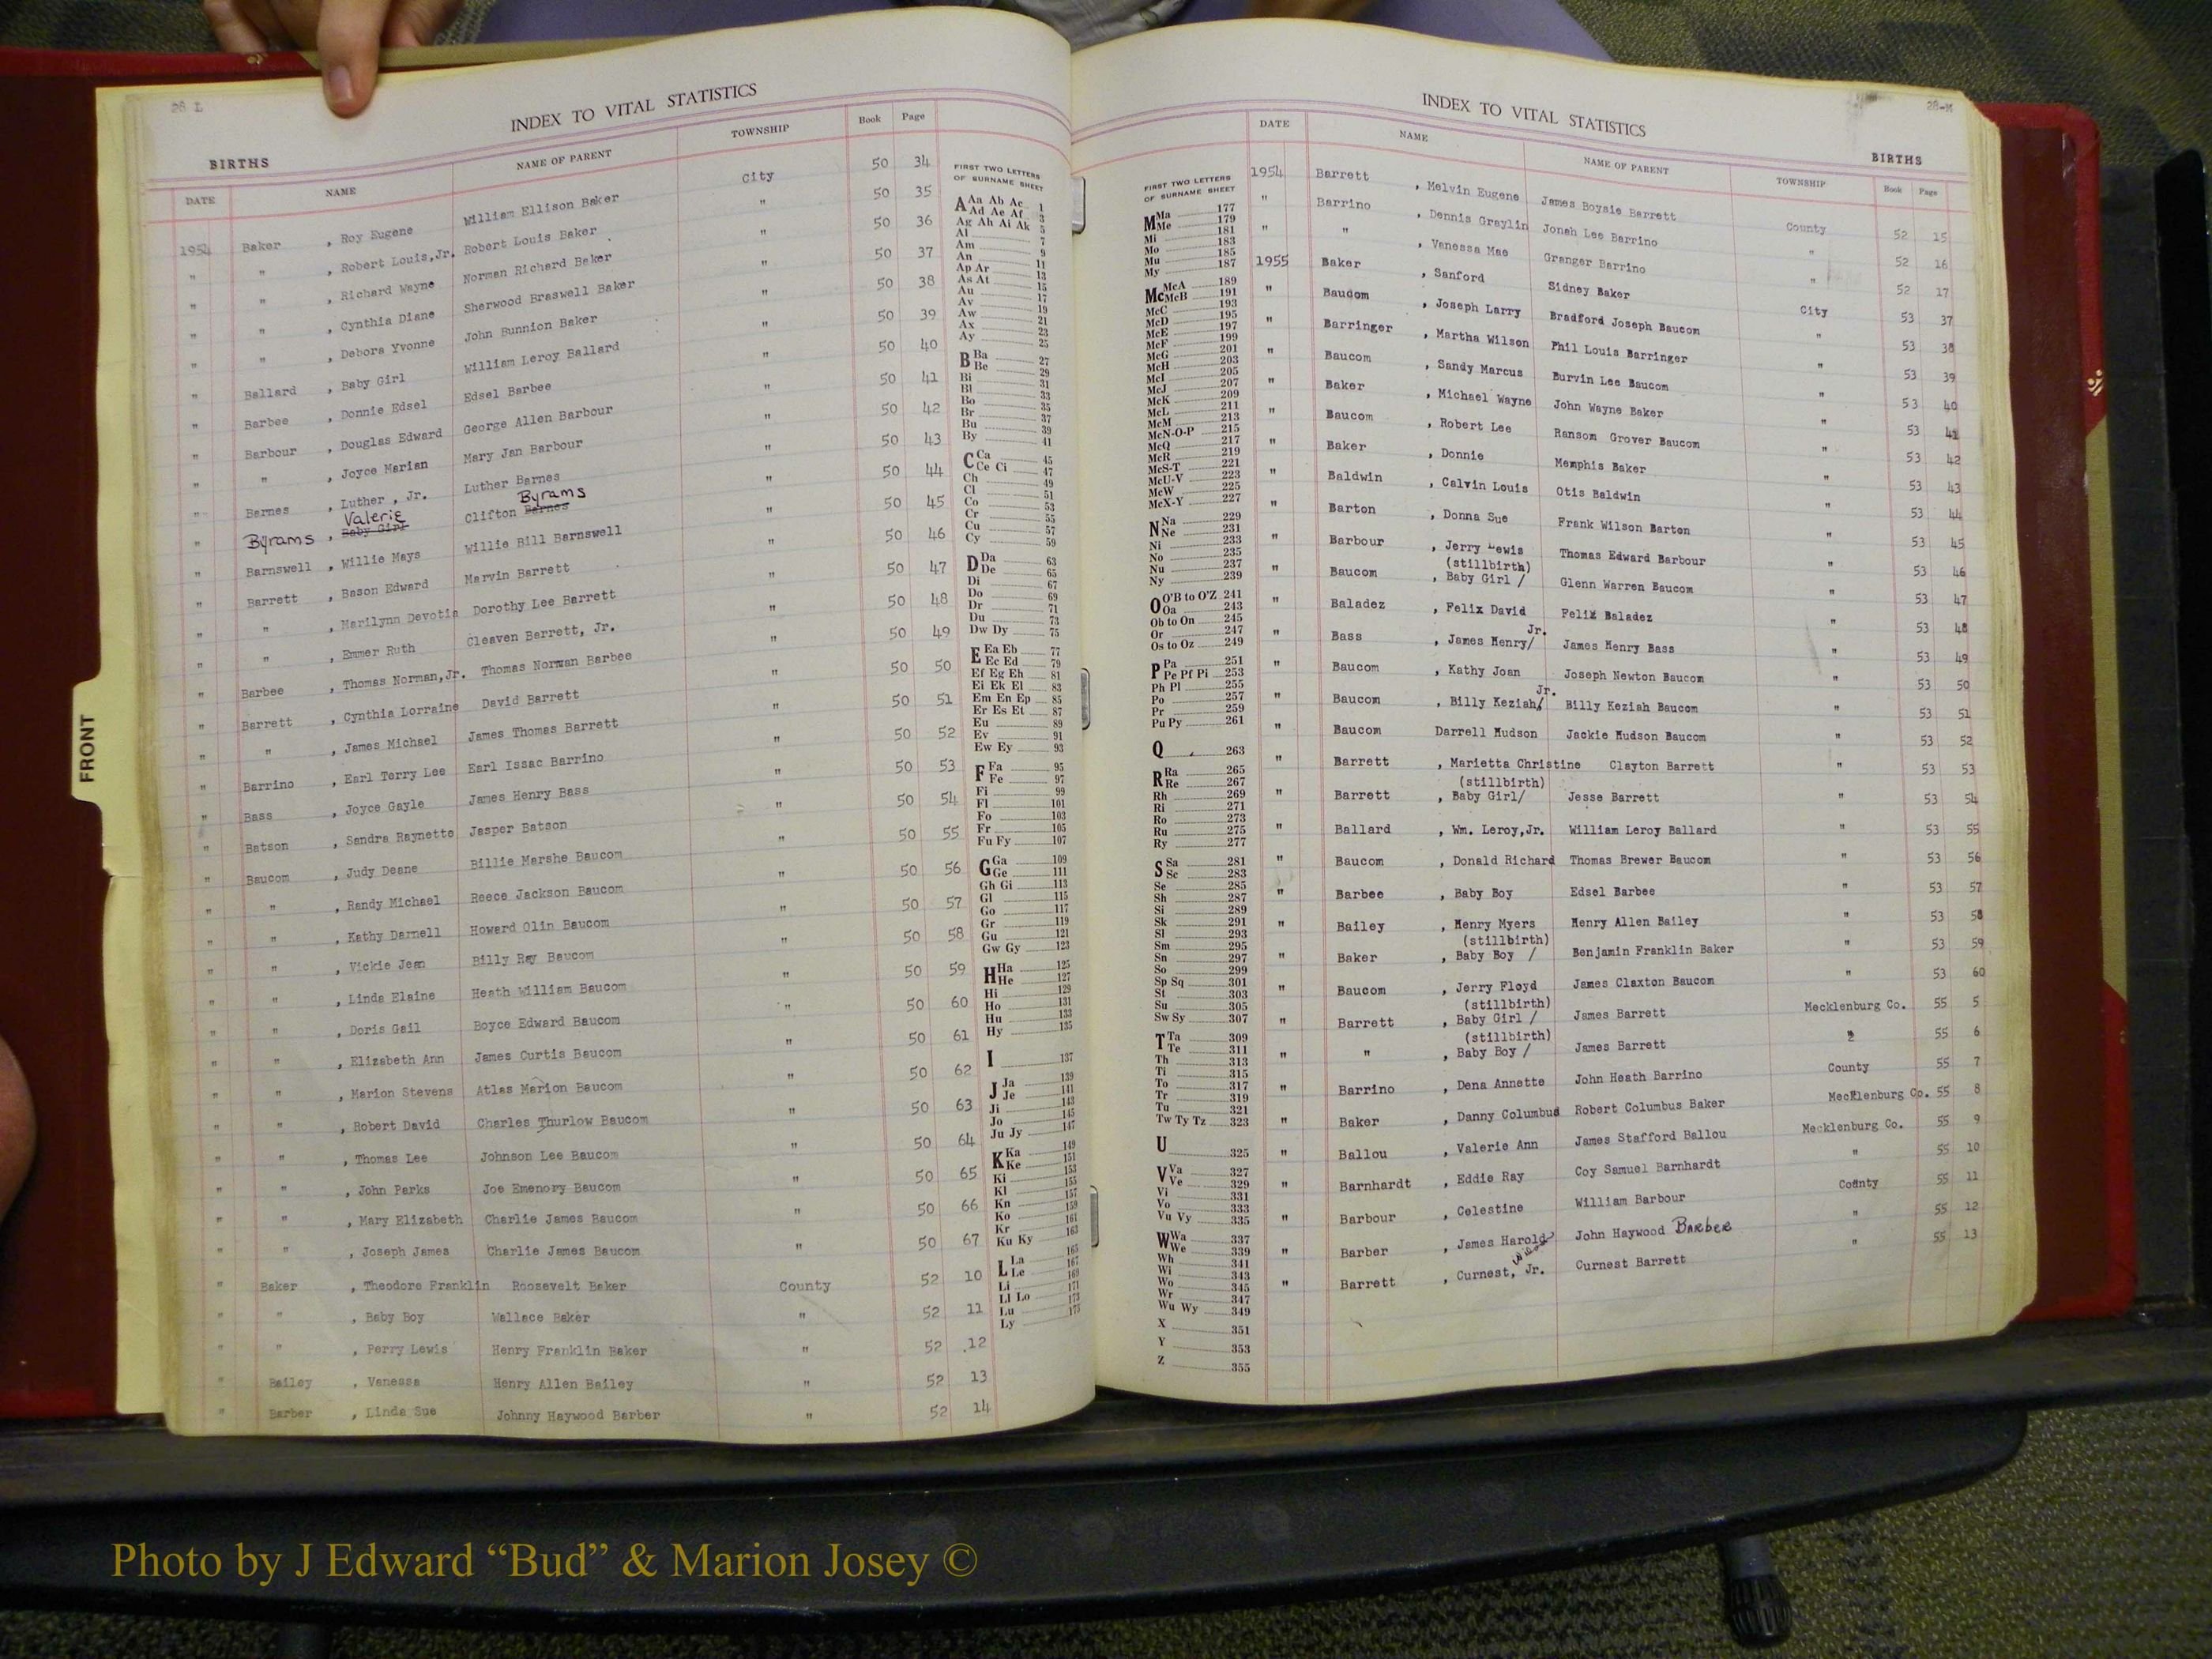 28 L
INDEX TO VITAL STATISTICS
BIRTHS
DATE NAME NAME OF PARENT TOWNSHIP Book Page
1954 Baker , Roy Eugene William Ellison Baker City 50 34
" " , Robert Louis,Jr. Robert Louis Baker " 50 35
" " , Richard Wayne Norman Richard Baker " 50 36
" " , Cynthia Diane Sherwood Braswell Baker " 50 37
" " , Debora Yvonne John Runnion Baker " 50 38
" Ballard , Baby Girl William Leroy Ballard " 50 39
" Barbee , Donnie Edsel Edsel Barbee " 50 40
" Barbour , Douglas Edward George Allen Barbour " 50 41
" " , Joyce Marian Mary Jan Barbour " 50 42
" Barnes , Luther , Jr. Luther Barnes " 50 43
" Byrams , Valerie Baby Girl Clifton Barnes Byrams " 50 44
" Barnswell , Willie Mays Willie Bill Barnswell " 50 45
" Barrett , Bason Edward Marvin Barrett " 50 46
" " , Marilynn Devotia Dorothy Lee Barrett " 50 47
" " , Emmer Ruth Cleaven Barrett, Jr. " 50 48
" Barbee , Thomas Norman,Jr. Thomas Norman Barbee " 50 49
" Barrett , Cynthia Lorraine David Barrett " 50 50
" " , James Michael James Thomas Barrett " 50 51
" Barrino , Earl Terry Lee Earl Issac Barrino " 50 52
" Bass , Joyce Gayle James Henry Bass " 50 53
" Batson , Sandra Raynette Jasper Batson " 50 54
" Baucom , Judy Deane Billie Marshe Baucom " 50 55
" " , Randy Michael Reece Jackson Baucom " 50 56
" " , Kathy Darnell Howard Olin Baucom " 50 57
" " , Vickie Jean Billy Ray Baucom " 50 58
" " , Linda Elaine Heath William Baucom " 50 59
" " , Doris Gail Boyce Edward Baucom " 50 60
" " , Elizabeth Ann James Curtis Baucom " 50 61
" " , Marion Stevens Atlas Marion Baucom " 50 62
" " , Robert David Charles Thurlow Baucom " 50 63
" " , Thomas Lee Johnson Lee Baucom " 50 64
" " , John Parks Joe Emenory Baucom " 50 65
" " , Mary Elizabeth Charlie James Baucom " 50 66
" " , Joseph James Charlie James Baucom " 50 67
" Baker , Theodore Franklin Roosevelt Baker County 52 10
" " , Baby Boy Wallace Baker " 52 11
" " , Perry Lewis Henry Franklin Baker " 52 12
" Bailey , Vanessa Henry Allen Bailey " 52 13
" Barber , Linda Sue Johnny Haywood Barber " 52 14
FIRST TWO LETTERS
OF SURNAME SHEET
A Aa Ab Ac 1
Ad Ae Af 3
Ag Ah Ai Ak 5
Al 7
Am 9
An 11
Ap Ar 13
As At 15
Au 17
Av 19
Aw 21
Ax 23
Ay 25
B Ba 27
Be 29
Bi 31
Bl 33
Bo 35
Br 37
Bu 39
By 41
C Ca 45
Ce Ci 47
Ch 49
Cl 51
Co 53
Cr 55
Cu 57
Cy 59
D Da 63
De 65
Di 67
Do 69
Dr 71
Du 73
Dw Dy 75
E Ea Eb 77
Ec Ed 79
Ef Eg Eh 81
Ei Ek El 83
Em En Ep 85
Er Es Et 87
Eu 89
Ev 91
Ew Ey 93
F Fa 95
Fe 97
Fi 99
Fl 101
Fo 103
Fr 105
Fu Fy 107
G Ga 109
Ge 111
Gh Gi 113
Gl 115
Go 117
Gr 119
Gu 121
Gw Gy 123
H Ha 125
He 127
Hi 129
Ho 131
Hu 133
Hy 135
I 137
J Ja 139
Je 141
Ji 143
Jo 145
Ju Jy 147
K Ka 149
Ke 151
Ki 153
Kl 155
Kn 157
Ko 159
Kr 161
Ku Ky 163
L La 165
Le 167
Li 169
Ll Lo 171
Lu 173
Ly 175
28-M
INDEX TO VITAL STATISTICS
BIRTHS
FIRST TWO LETTERS
OF SURNAME SHEET
M Ma 177
Me 179
Mi 181
Mo 183
Mu 185
My 187
Mc McA 189
McB 191
McC 193
McD 195
McE 197
McF 199
McG 201
McH 203
McI 205
McJ 207
McK 209
McL 211
McM 213
McN-O-P 215
McQ 217
McR 219
McS-T 221
McU-V 223
McW 225
McX-Y 227
N Na 229
Ne 231
Ni 233
No 235
Nu 237
Ny 239
O O'B to O'Z 241
Oa 243
Ob to On 245
Or 247
Os to Oz 249
P Pa 251
Pe Pf Pi 253
Ph Pl 255
Po 257
Pr 259
Pu Py 261
Q 263
R Ra 265
Re 267
Rh 269
Ri 271
Ro 273
Ru 275
Ry 277
S Sa 281
Sc 283
Se 285
Sh 287
Si 289
Sk 291
Sl 293
Sm 295
Sn 297
So 299
Sp Sq 301
St 303
Su 305
Sw Sy 307
T Ta 309
Te 311
Th 313
Ti 315
To 317
Tr 319
Tu 321
Tw Ty Tz 323
U 325
V Va 327
Ve 329
Vi 331
Vo 333
Vu Vy 335
W Wa 337
We 339
Wh 341
Wi 343
Wo 345
Wr 347
Wu Wy 349
X 351
Y 353
Z 355
DATE NAME NAME OF PARENT TOWNSHIP Book Page
1954 Barrett , Melvin Eugene James Boysie Barrett County 52 15
" Barrino , Dennis Graylin Jonah Lee Barrino " 52 16
" " , Vanessa Mae Granger Barrino " 52 17
1955 Baker , Sanford Sidney Baker City 53 37
" Baucom , Joseph Larry Bradford Joseph Baucom " 53 38
" Barringer , Martha Wilson Phil Louis Barringer " 53 39
" Baucom , Sandy Marcus Burvin Lee Baucom " 53 40
" Baker , Michael Wayne John Wayne Baker " 53 41
" Baucom , Robert Lee Ransom Grover Baucom " 53 42
" Baker , Donnie Memphis Baker " 53 43
" Baldwin , Calvin Louis Otis Baldwin " 53 44
" Barton , Donna Sue Frank Wilson Barton " 53 45
" Barbour , Jerry Lewis Thomas Edward Barbour " 53 46
(stillbirth)
" Baucom , Baby Girl / Glenn Warren Baucom " 53 47
" Baladez , Felix David Felix Baladez " 53 48
Jr.
" Bass , James Henry/ James Henry Bass " 53 49
" Baucom , Kathy Joan Joseph Newton Baucom " 53 50
Jr.
" Baucom , Billy Keziah/ Billy Keziah Baucom " 53 51
" Baucom Darrell Hudson Jackie Hudson Baucom " 53 52
" Barrett , Marietta Christine Clayton Barrett " 53 53
(stillbirth)
" Barrett , Baby Girl/ Jesse Barrett " 53 54
" Ballard , Wm. Leroy,Jr. William Leroy Ballard " 53 55
" Baucom , Donald Richard Thomas Brewer Baucom " 53 56
" Barbee , Baby Boy Edsel Barbee " 53 57
" Bailey , Henry Myers Henry Allen Bailey " 53 58
(stillbirth)
" Baker , Baby Boy / Benjamin Franklin Baker " 53 59
" Baucom , Jerry Floyd James Claxton Baucom " 53 60
(stillbirth)
" Barrett , Baby Girl / James Barrett Mecklenburg Co. 55 5
(stillbirth)
" " , Baby Boy / James Barrett " 55 6
" Barrino , Dena Annette John Heath Barrino County 55 7
" Baker , Danny Columbus Robert Columbus Baker Mecklenburg Co. 55 8
" Ballou , Valerie Ann James Stafford Ballou Mecklenburg Co. 55 9
" Barnhardt , Eddie Ray Coy Samuel Barnhardt " 55 10
" Barbour , Celestine William Barbour County 55 11
" Barber , James Harold John Haywood Barber " 55 12
" Barrett , Curnest, Jr. Curnest Barrett " 55 13
FRONT
Photo by J Edward “Bud” & Marion Josey ©